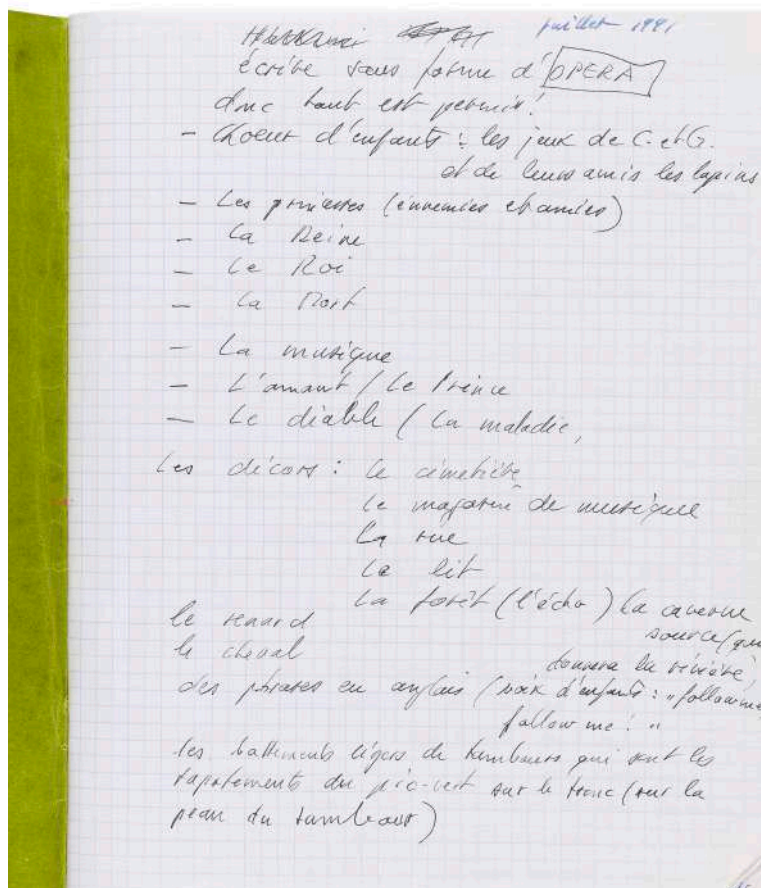 juillet 1991
écrire sous forme d'OPERA
donc tout est permis!
- Choeur d'enfants : les jeux de C. et G.
et de leurs amis les lapins
- Les princesses (ennemies et amies)
- La Reine
- Le Roi
- La Mort
- La musique
- L'amant / Le Prince
- Le diable / La maladie,
Les décors : le cimetière
le magasin de musique
La rue
Le lit
La forêt (l'écho) la caverne
source (qui
le renard
donnera la rivière,
le cheval
des phrases en anglais (voix d'enfants : "follow me,
follow me! "
les battements légers de tambours qui sont les
tapotements du pic-vert sur le tronc (sur la
peau du tambour)